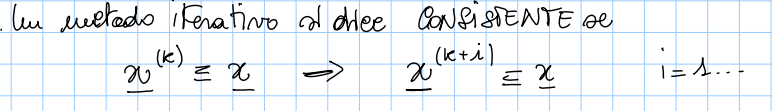 . Un metodo iterativo si dice CONSISTENTE se
x^(k) ≡ x ⇒ x^(k+i) ≡ x i = 1...